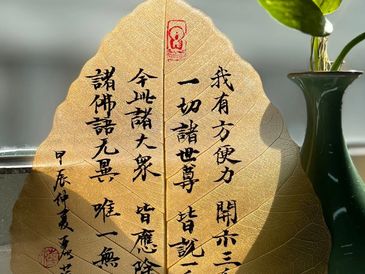 我有方便力 開示三
一切諸世尊 皆説一
今此諸大衆 皆應除
諸佛語无異 唯一無
甲辰仲夏